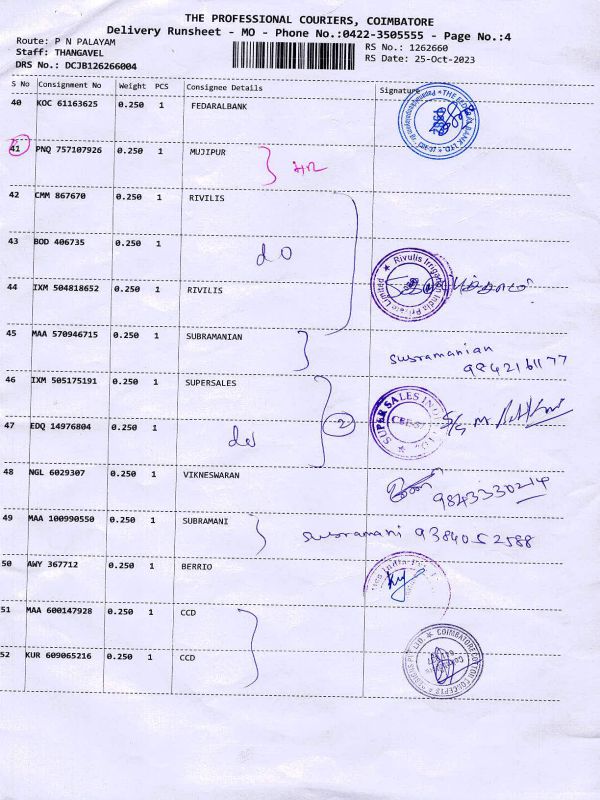 THE PROFESSIONAL COURIERS, COIMBATORE
Delivery Runsheet - MO - Phone No.:0422-3505555 - Page No.:4
Route: P N PALAYAM
RS No.: 1262660
Staff: THANGAVEL
RS Date: 25-Oct-2023
DRS No.: DCJB126266004
S No Consignment No Weight PCS Consignee Details Signature
40 KOC 61163625 0.250 1 FEDARALBANK
41 PNQ 757107926 0.250 1 MUJIPUR
42 CMM 867670 0.250 1 RIVILIS
43 BOD 406735 0.250 1 do
Rivulis Irrigation India Private Limited
44 IXM 504818652 0.250 1 RIVILIS
45 MAA 570946715 0.250 1 SUBRAMANIAN
Subramanian
9842161177
46 IXM 505175191 0.250 1 SUPERSALES
47 EDQ 14976804 0.250 1 do 2
SUPER SALES
48 NGL 6029307 0.250 1 VIKNESWARAN
9843330214
49 MAA 100990550 0.250 1 SUBRAMANI
Subramani 9384052588
50 AWY 367712 0.250 1 BERRIO
51 MAA 600147928 0.250 1 CCD
52 KUR 609065216 0.250 1 CCD
COIMBATORE